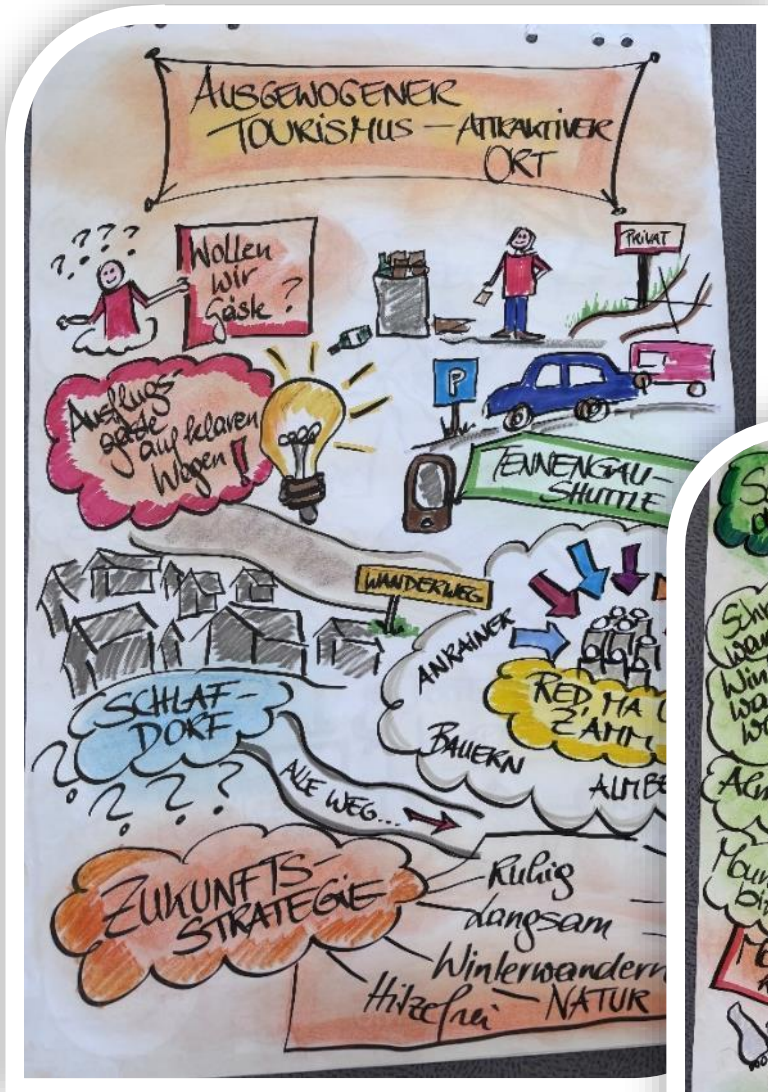 AUSGEWOGENER
TOURISMUS – ATTRAKTIVER
ORT
? ? ? ?
Wollen
wir
Gäste ?
PRIVAT
Ausflugs-
gäste
auf klaren
Wegen !
P
TENNENGAU-
SHUTTLE
WANDERWEG
ANRAINER
RED. MA
Z'AMM
BAUERN
SCHLAF-
DORF
? ? ? ? ?
ALLE WEG...
ZUKUNFTS-
STRATEGIE
Ruhig
Langsam
Winterwandern
Hitzefrei – NATUR